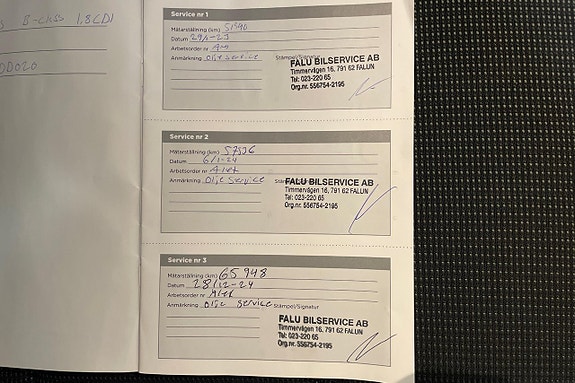 B-class 1.8CDI
Service nr 1
Mätarställning (km)
Datum 29/1-23
Arbetsorder nr
Anmärkning Olje service Stämpel/Signatur
FALU BILSERVICE AB
Timmervägen 16, 791 62 FALUN
Tel: 023-220 65
Org.nr. 556754-2195
Service nr 2
Mätarställning (km)
Datum 6/1-24
Arbetsorder nr
Anmärkning Olje Service
FALU BILSERVICE AB
Timmervägen 16, 791 62 FALUN
Tel: 023-220 65
Org.nr. 556754-2195
Service nr 3
Mätarställning (km) 65 948
Datum 28/12-24
Arbetsorder nr
Anmärkning Olje Service Stämpel/Signatur
FALU BILSERVICE AB
Timmervägen 16, 791 62 FALUN
Tel: 023-220 65
Org.nr. 556754-2195